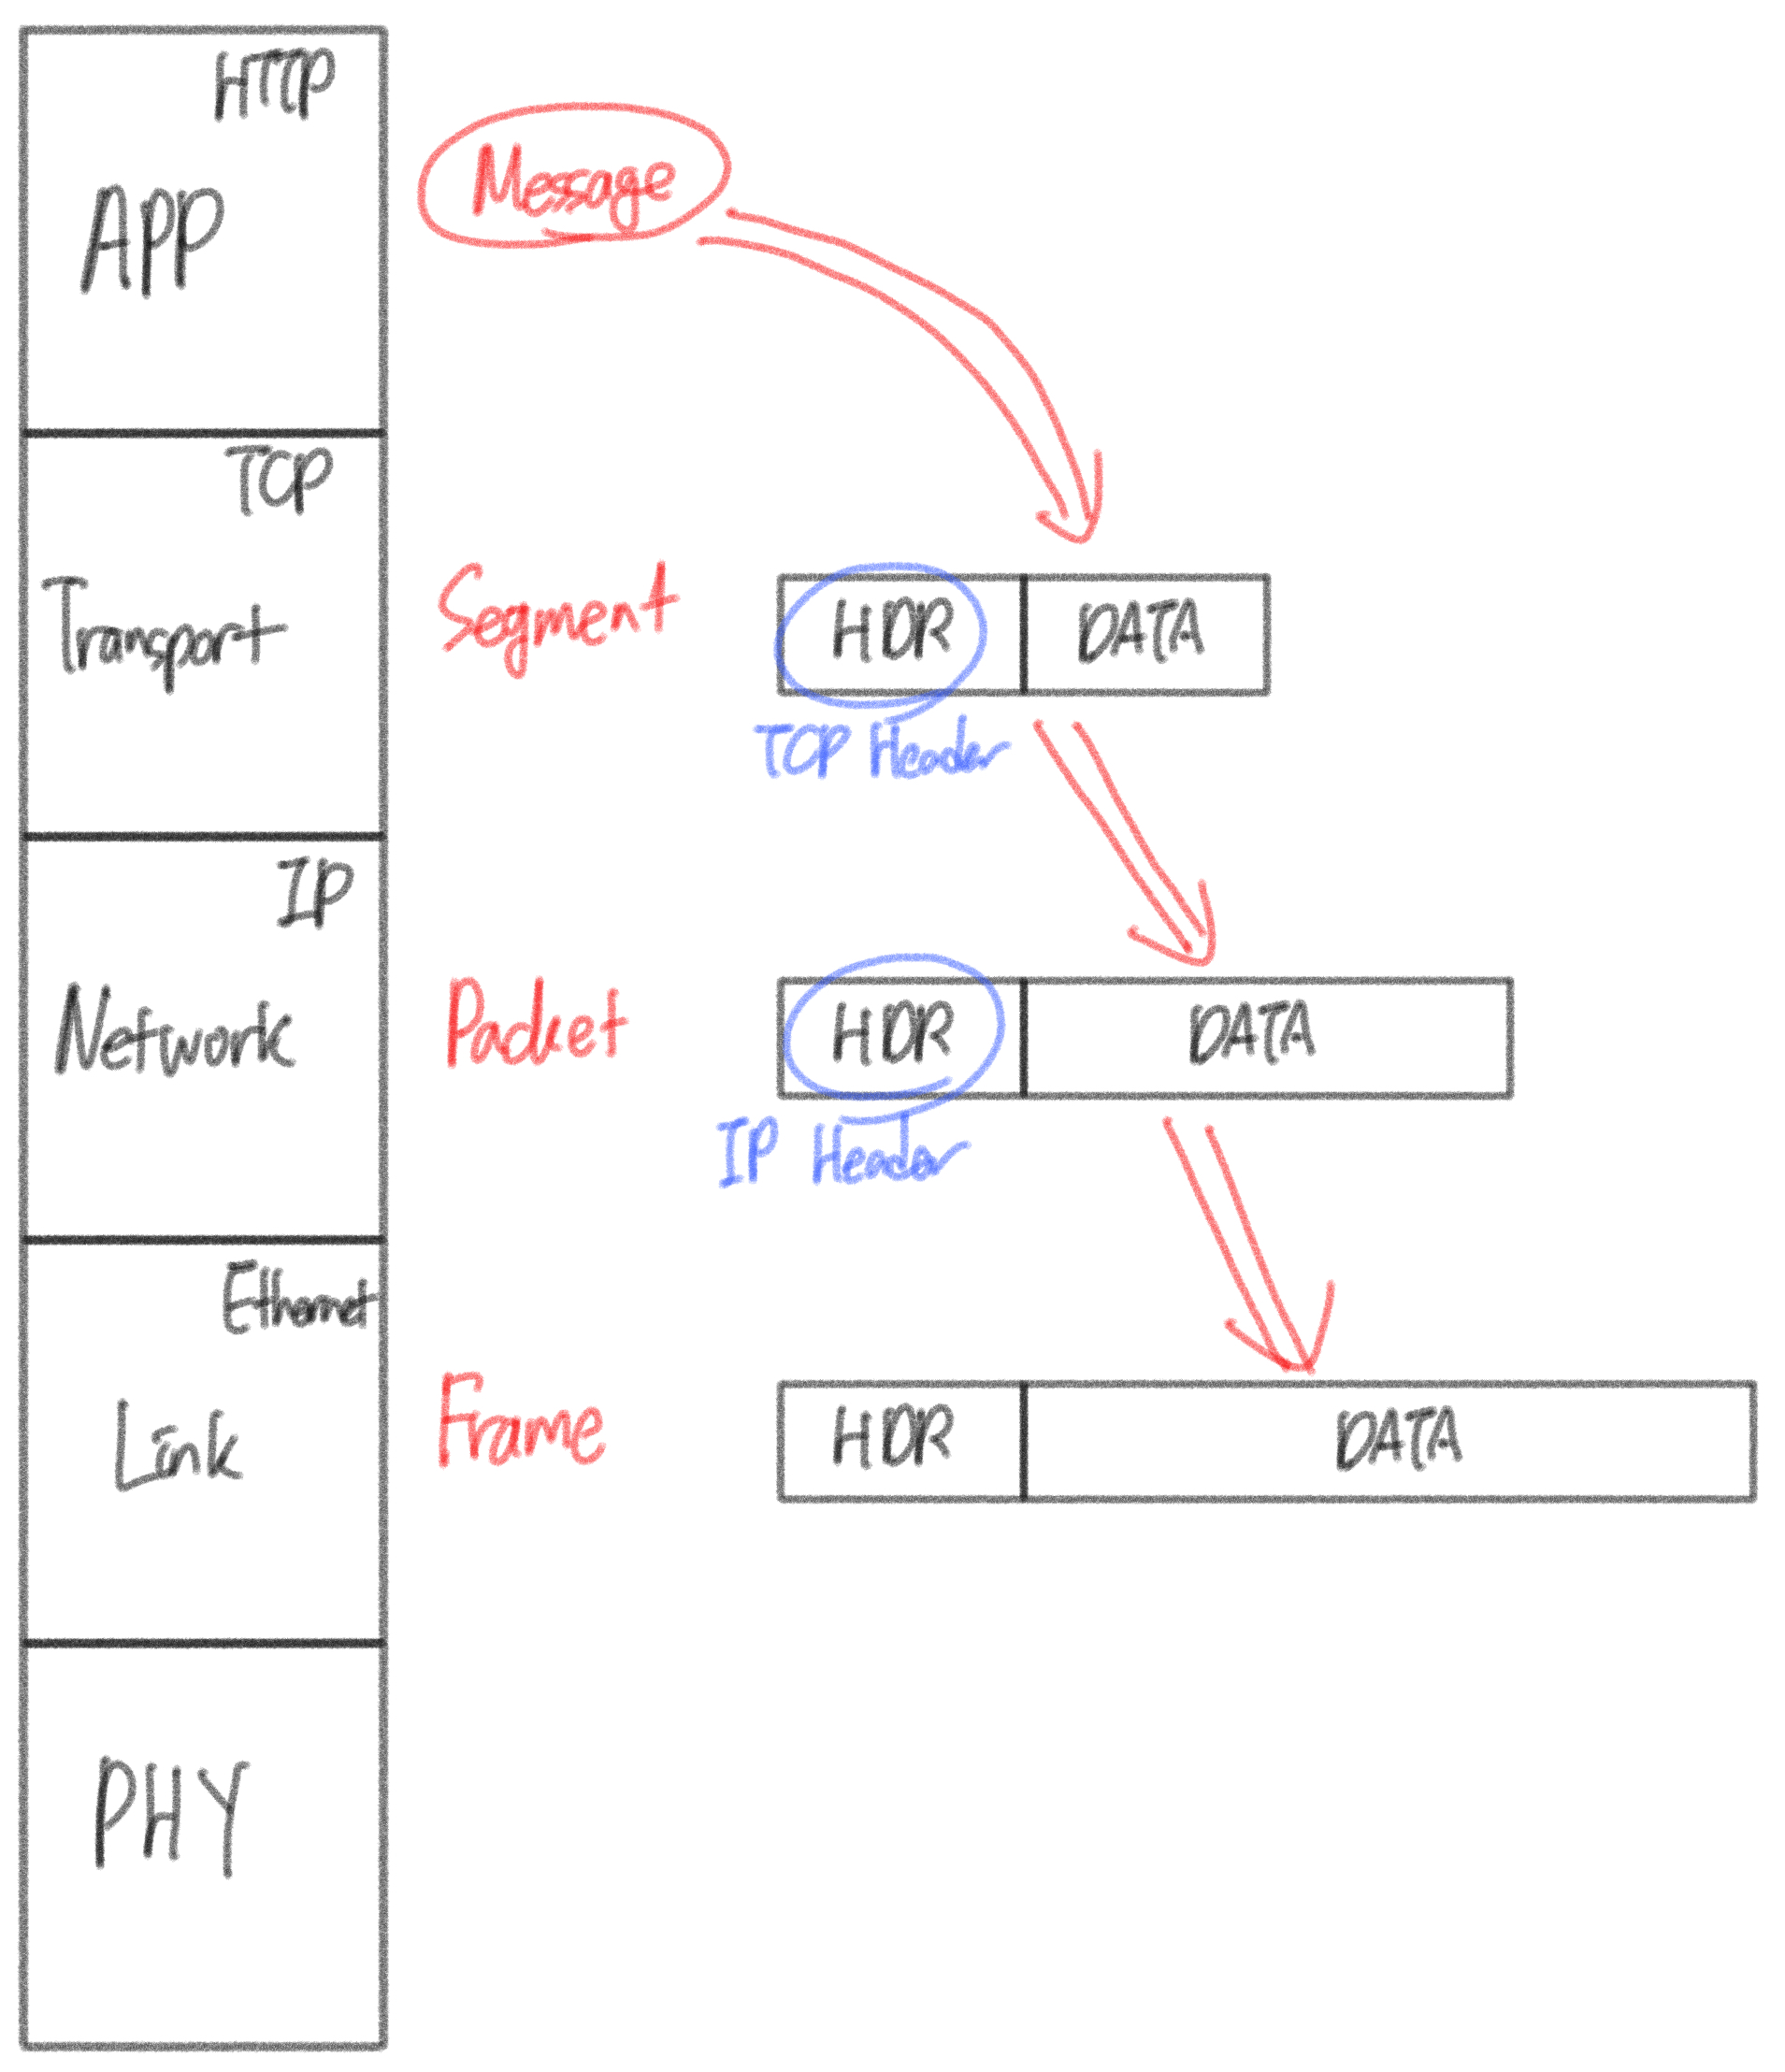 HTTP
APP
Message
TCP
Transport
Segment
HDR
DATA
TCP Header
IP
Network
Packet
HDR
DATA
IP Header
Ethernet
Link
Frame
HDR
DATA
PHY